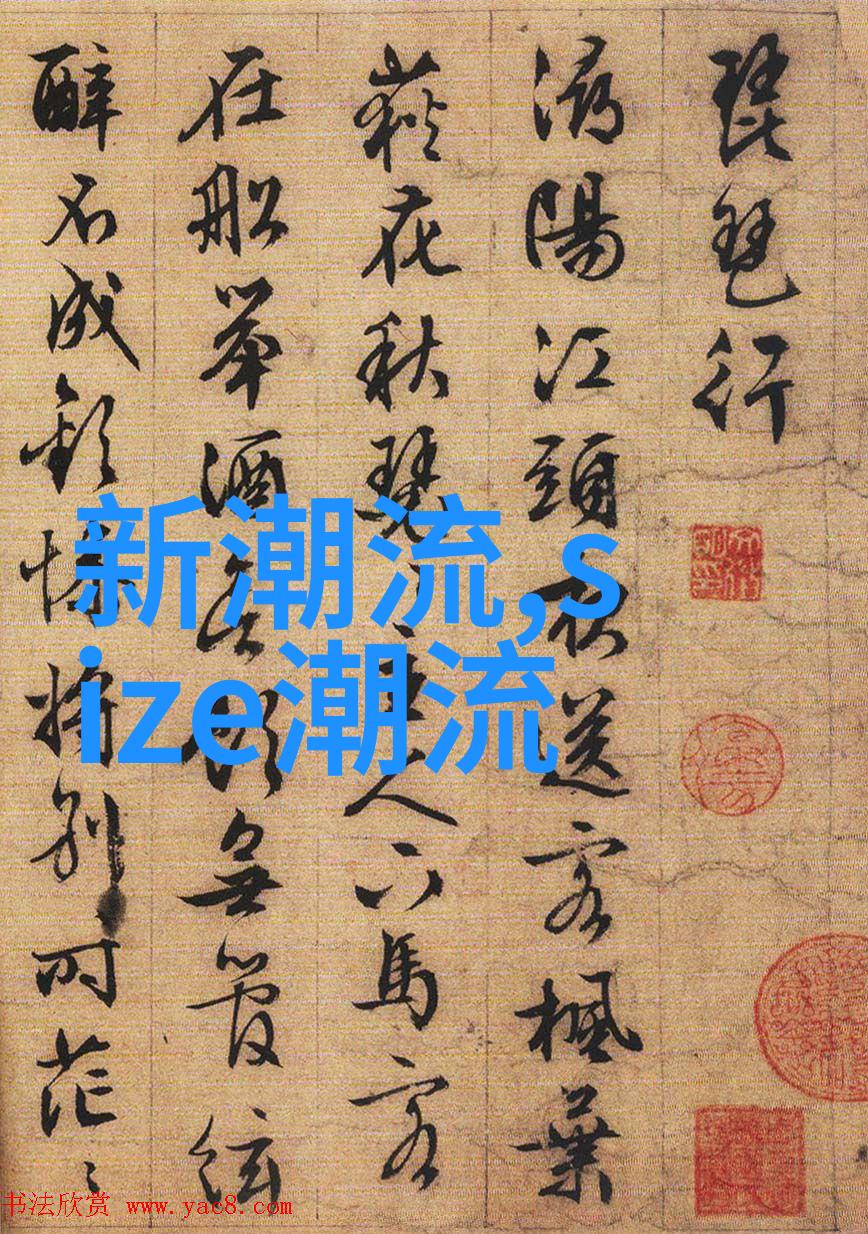 琵琶行
潯陽江頭夜送客楓葉
荻花秋瑟〻主人下馬客
在船舉酒欲飲無管絃
醉不成歡慘將別時茫〻
新潮流,s
ize潮流
书法欣赏 www.yac8.com